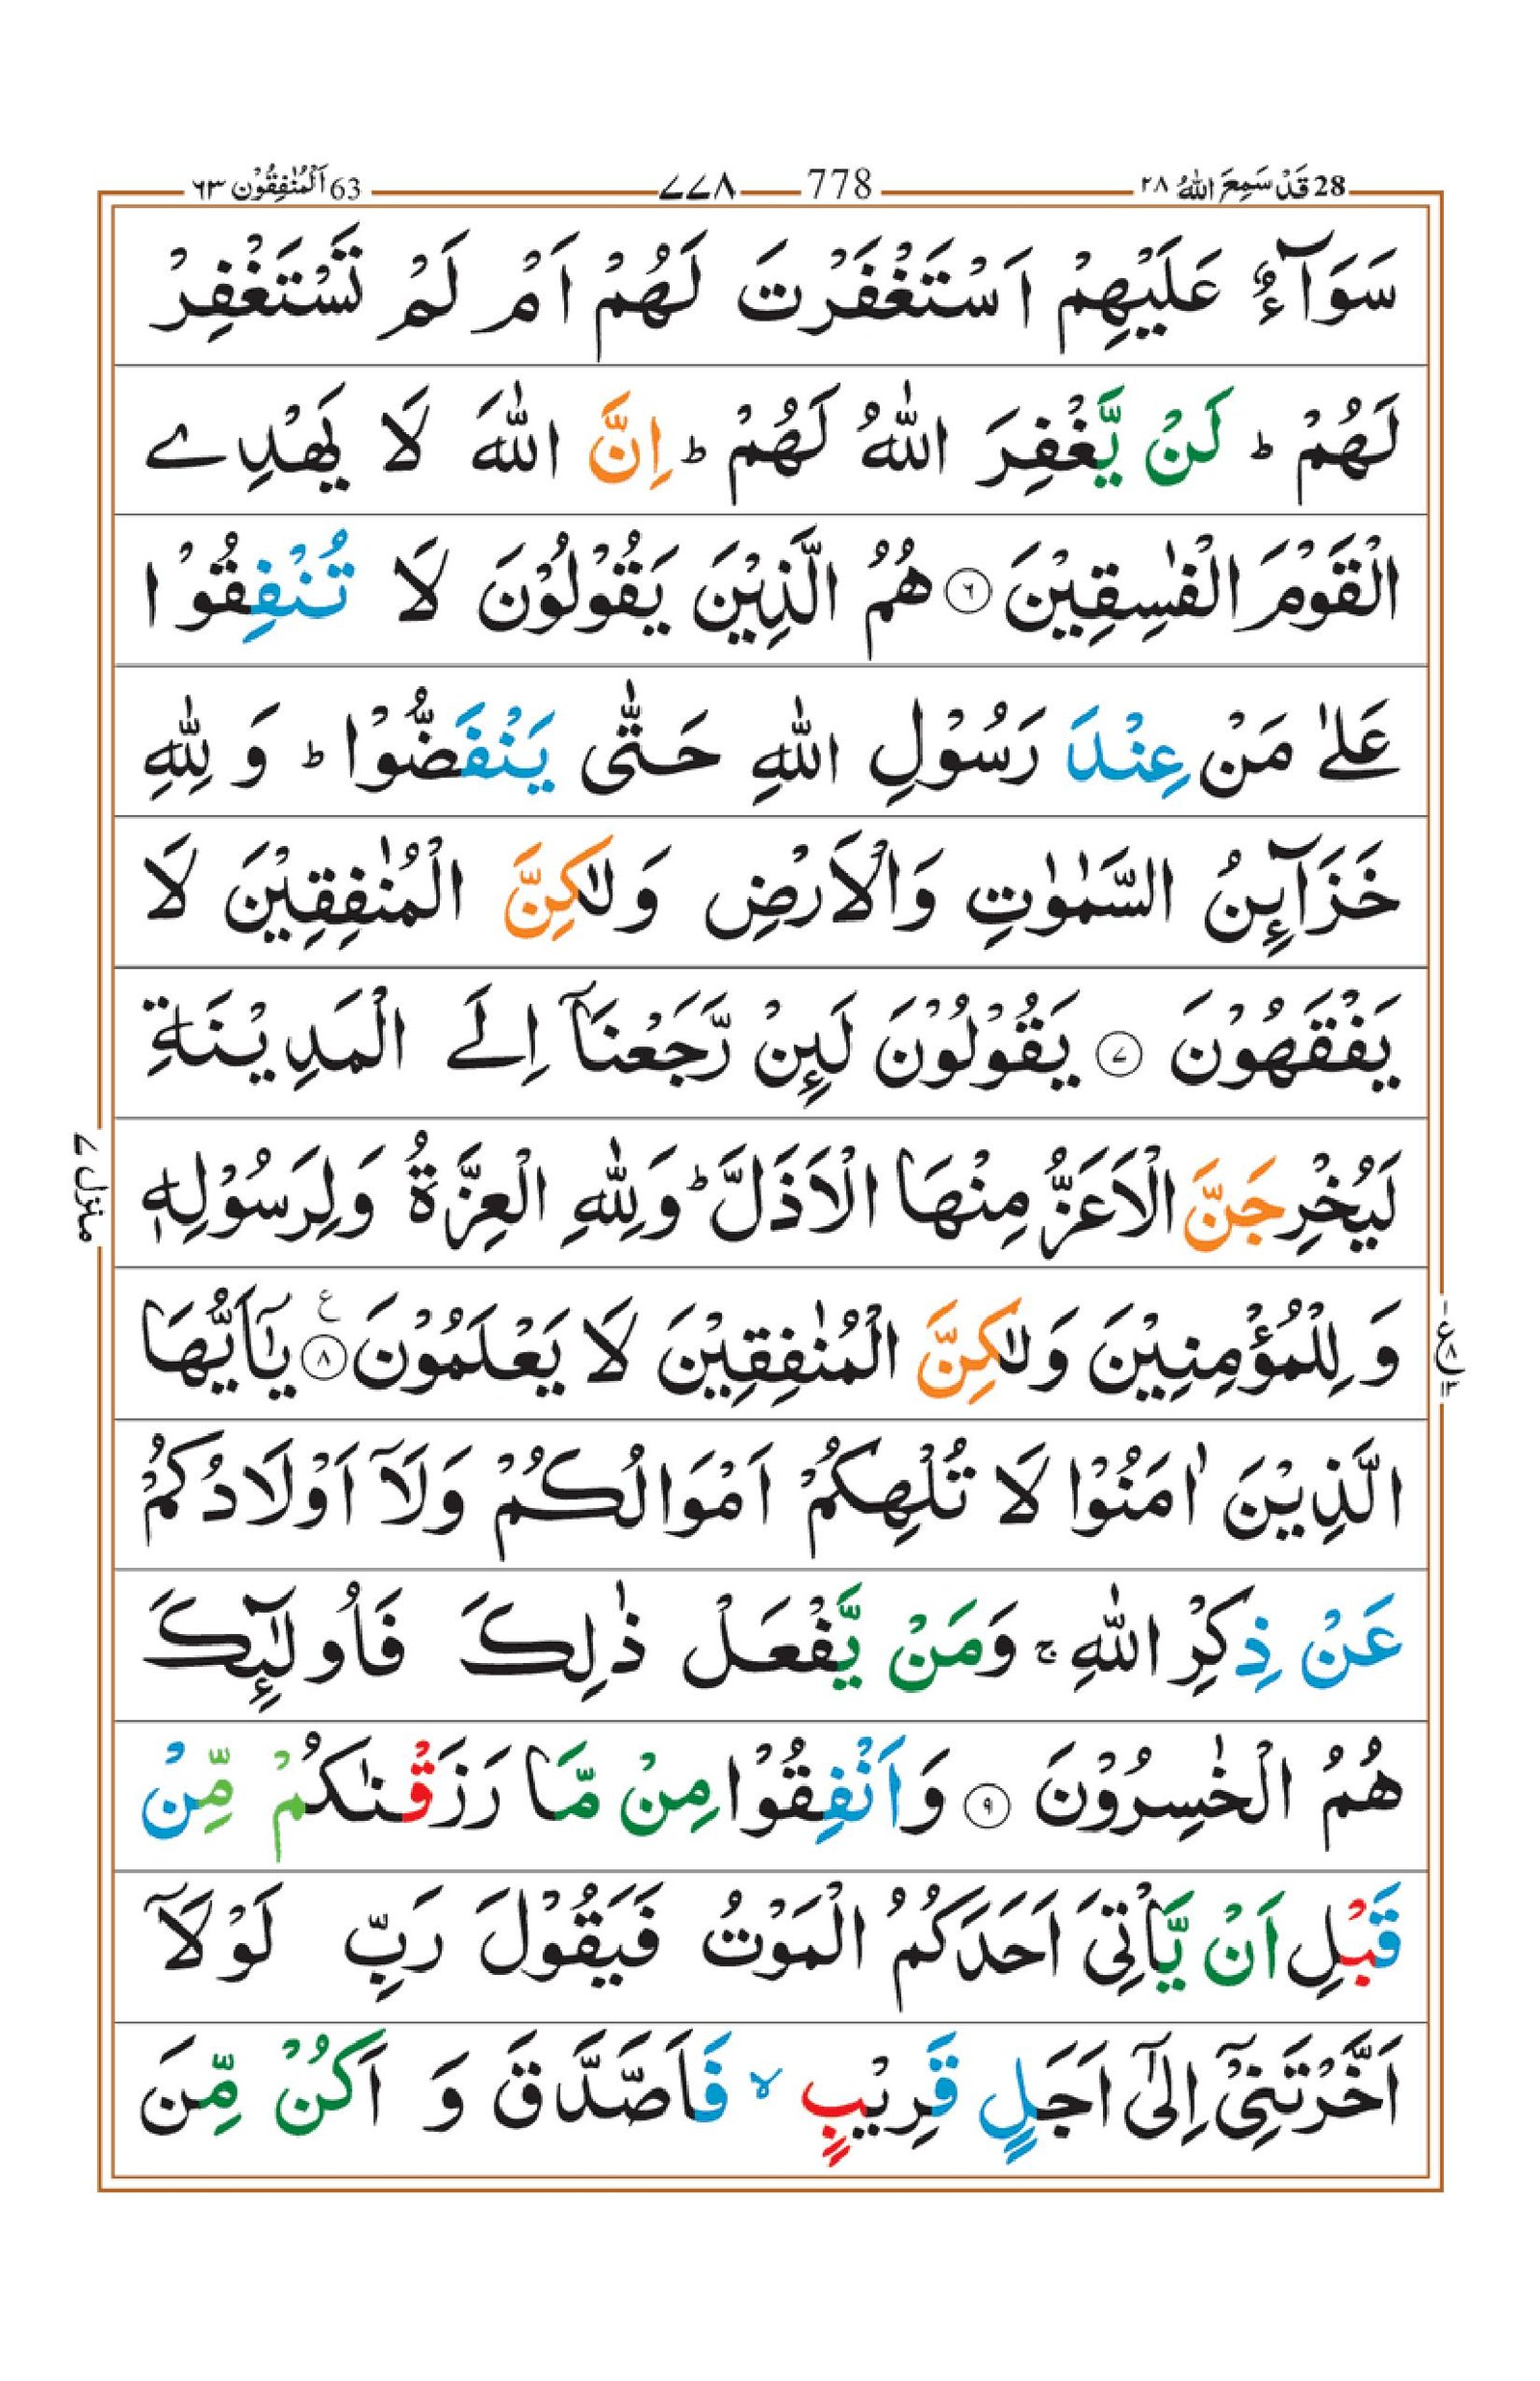 28 قَدْ سَمِعَ اللّٰهُ ۲۸
778 ۷۷۸
63 اَلْمُنٰفِقُوْن ۶۳
سَوَآءٌ عَلَيْهِمْ اَسْتَغْفَرْتَ لَهُمْ اَمْ لَمْ تَسْتَغْفِرْ
لَهُمْ ؕ لَنْ يَّغْفِرَ اللّٰهُ لَهُمْ ؕ اِنَّ اللّٰهَ لَا يَهْدِے
الْقَوْمَ الْفٰسِقِيْنَ ۶ هُمُ الَّذِيْنَ يَقُوْلُوْنَ لَا تُنْفِقُوْا
عَلٰے مَنْ عِنْدَ رَسُوْلِ اللّٰهِ حَتّٰى يَنْفَضُّوْا ؕ وَ لِلّٰهِ
خَزَآئِنُ السَّمٰوٰتِ وَالْاَرْضِ وَلٰكِنَّ الْمُنٰفِقِيْنَ لَا
يَفْقَهُوْنَ ۷ يَقُوْلُوْنَ لَئِنْ رَّجَعْنَاۤ اِلَے الْمَدِيْنَةِ
لَيُخْرِجَنَّ الْاَعَزُّ مِنْهَا الْاَذَلَّ ؕ وَلِلّٰهِ الْعِزَّةُ وَلِرَسُوْلِهٖ
وَ لِلْمُؤْمِنِيْنَ وَلٰكِنَّ الْمُنٰفِقِيْنَ لَا يَعْلَمُوْنَ ۸ ع يٰۤاَيُّهَا
الَّذِيْنَ اٰمَنُوْا لَا تُلْهِكُمْ اَمْوَالُكُمْ وَلَاۤ اَوْلَادُكُمْ
عَنْ ذِكْرِ اللّٰهِ ۚ وَمَنْ يَّفْعَلْ ذٰلِكَ فَاُولٰٓئِكَ
هُمُ الْخٰسِرُوْنَ ۹ وَاَنْفِقُوْا مِنْ مَّا رَزَقْنٰكُمْ مِّنْ
قَبْلِ اَنْ يَّاْتِيَ اَحَدَكُمُ الْمَوْتُ فَيَقُوْلَ رَبِّ لَوْلَاۤ
اَخَّرْتَنِيْۤ اِلٰٓى اَجَلٍ قَرِيْبٍ ۙ فَاَصَّدَّقَ وَ اَكُنْ مِّنَ
منزل ۷
ع ۸ ۱۳